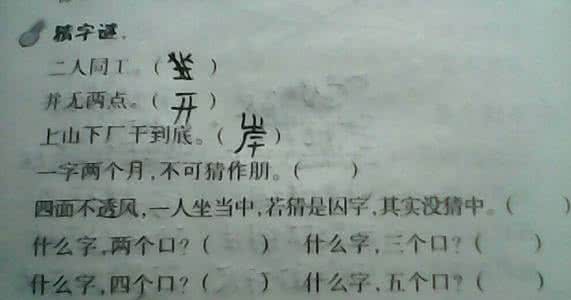 猜字谜.
二人同工。( )
并无两点。(开)
上山下厂干到底。(岸)
一字两个月,不可猜作朋。( )
四面不透风,一人坐当中,若猜是囚字,其实没猜中。( )
什么字,两个口?( ) 什么字,三个口?( )
什么字,四个口?( ) 什么字,五个口?( )